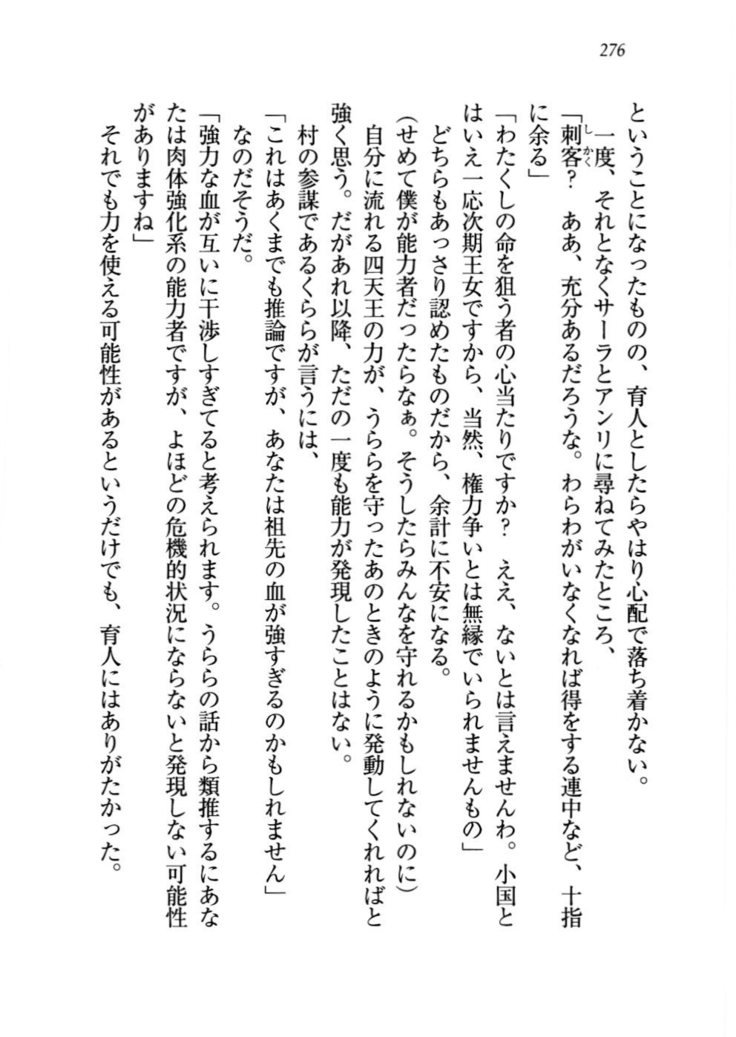 276
ということになったものの、育人としたらやはり心配で落ち着かない。
一度、それとなくサーラとアンリに尋ねてみたところ、
「刺客？　ああ、充分あるだろうな。わらわがいなくなれば得をする連中など、十指
に余る」
「わたくしの命を狙う者の心当たりですか？　ええ、ないとは言えませんわ。小国と
はいえ一応次期王女ですから、当然、権力争いとは無縁でいられませんもの」
どちらもあっさり認めたものだから、余計に不安になる。
（せめて僕が能力者だったらなぁ。そうしたらみんなを守れるかもしれないのに）
自分に流れる四天王の力が、うららを守ったあのときのように発動してくれればと
強く思う。だがあれ以降、ただの一度も能力が発現したことはない。
村の参謀であるくららが言うには、
「これはあくまでも推論ですが、あなたは祖先の血が強すぎるのかもしれません」
なのだそうだ。
「強力な血が互いに干渉しすぎてると考えられます。うららの話から類推するにあな
たは肉体強化系の能力者ですが、よほどの危機的状況にならないと発現しない可能性
がありますね」
それでも力を使える可能性があるというだけでも、育人にはありがたかった。